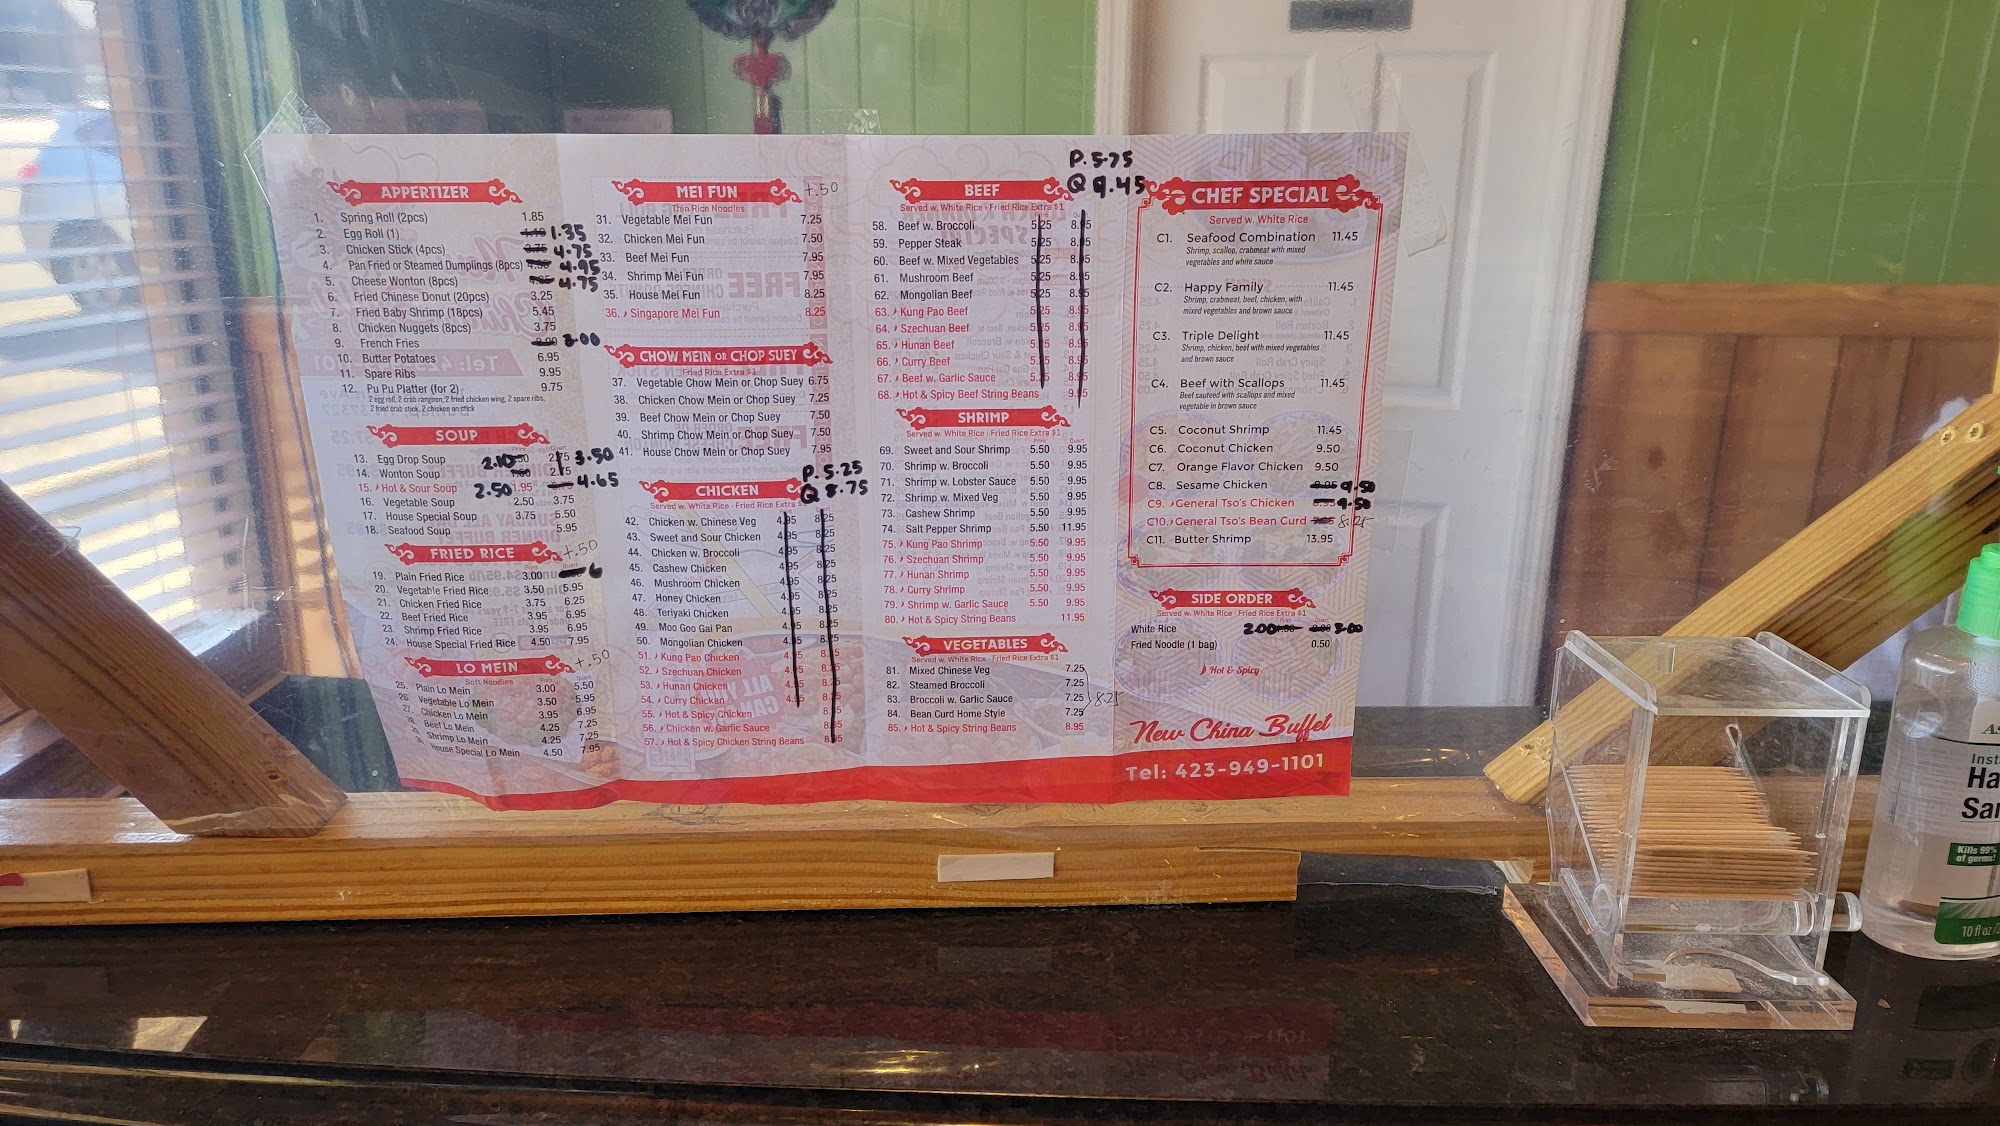 APPERTIZER
1. Spring Roll (2pcs) 1.85
2. Egg Roll (1) 1.10 1.35
3. Chicken Stick (4pcs) 3.75 4.75
4. Pan Fried or Steamed Dumplings (8pcs) 4.95
5. Cheese Wonton (8pcs) 4.75
6. Fried Chinese Donut (20pcs) 3.25
7. Fried Baby Shrimp (18pcs) 5.45
8. Chicken Nuggets (8pcs) 3.75
9. French Fries 2.00 3.00
10. Butter Potatoes 6.95
11. Spare Ribs 9.95
12. Pu Pu Platter (for 2) 9.75
2 egg roll, 2 crab rangoon, 2 fried chicken wing, 2 spare ribs,
2 fried crab stick, 2 chicken on stick
SOUP
Quart
13. Egg Drop Soup 2.10 2.75 3.50
14. Wonton Soup 2.75
15. Hot & Sour Soup 2.50 1.95 4.65
16. Vegetable Soup 2.50 3.75
17. House Special Soup 3.75 5.50
18. Seafood Soup 5.95
FRIED RICE +.50
Quart
19. Plain Fried Rice 3.00 6
20. Vegetable Fried Rice 3.50 5.95
21. Chicken Fried Rice 3.75 6.25
22. Beef Fried Rice 3.95 6.95
23. Shrimp Fried Rice 3.95 6.95
24. House Special Fried Rice 4.50 7.95
LO MEIN +.50
Soft Noodles Quart
25. Plain Lo Mein 3.00 5.50
26. Vegetable Lo Mein 3.50 5.95
27. Chicken Lo Mein 3.95 6.95
Beef Lo Mein 4.25 7.25
Shrimp Lo Mein 4.25 7.25
House Special Lo Mein 4.50 7.95
MEI FUN +.50
Thin Rice Noodles
31. Vegetable Mei Fun 7.25
32. Chicken Mei Fun 7.50
33. Beef Mei Fun 7.95
34. Shrimp Mei Fun 7.95
35. House Mei Fun 8.25
36. Singapore Mei Fun 8.25
CHOW MEIN OR CHOP SUEY
Fried Rice Extra $1
37. Vegetable Chow Mein or Chop Suey 6.75
38. Chicken Chow Mein or Chop Suey 7.25
39. Beef Chow Mein or Chop Suey 7.50
40. Shrimp Chow Mein or Chop Suey 7.50
41. House Chow Mein or Chop Suey 7.95
P. 5.25
Q 8.75
CHICKEN
Served w. White Rice - Fried Rice Extra $1
42. Chicken w. Chinese Veg 4.95 8.25
43. Sweet and Sour Chicken 4.95 8.25
44. Chicken w. Broccoli 4.95 8.25
45. Cashew Chicken 4.95 8.25
46. Mushroom Chicken 4.95 8.25
47. Honey Chicken 4.95 8.25
48. Teriyaki Chicken 4.95 8.25
49. Moo Goo Gai Pan 4.95 8.25
50. Mongolian Chicken 4.95 8.25
51. Kung Pao Chicken 4.95 8.25
52. Szechuan Chicken 4.95 8.25
53. Hunan Chicken 4.95 8.25
54. Curry Chicken 4.95 8.25
55. Hot & Spicy Chicken
56. Chicken w. Garlic Sauce
57. Hot & Spicy Chicken String Beans
P. 5.75
Q 9.45
BEEF
Served w. White Rice - Fried Rice Extra $1
58. Beef w. Broccoli 5.25 8.95
59. Pepper Steak 5.25 8.95
60. Beef w. Mixed Vegetables 5.25 8.95
61. Mushroom Beef 5.25 8.95
62. Mongolian Beef 5.25 8.95
63. Kung Pao Beef 5.25 8.95
64. Szechuan Beef 5.25 8.95
65. Hunan Beef 5.25 8.95
66. Curry Beef 5.25 8.95
67. Beef w. Garlic Sauce 5.25 8.95
68. Hot & Spicy Beef String Beans 9.95
SHRIMP
Served w. White Rice - Fried Rice Extra $1
Print Quart
69. Sweet and Sour Shrimp 5.50 9.95
70. Shrimp w. Broccoli 5.50 9.95
71. Shrimp w. Lobster Sauce 5.50 9.95
72. Shrimp w. Mixed Veg 5.50 9.95
73. Cashew Shrimp 5.50 9.95
74. Salt Pepper Shrimp 5.50 11.95
75. Kung Pao Shrimp 5.50 9.95
76. Szechuan Shrimp 5.50 9.95
77. Hunan Shrimp 5.50 9.95
78. Curry Shrimp 5.50 9.95
79. Shrimp w. Garlic Sauce 5.50 9.95
80. Hot & Spicy String Beans 11.95
VEGETABLES
Served w. White Rice - Fried Rice Extra $1
81. Mixed Chinese Veg 7.25
82. Steamed Broccoli 7.25
83. Broccoli w. Garlic Sauce 7.25 8.25
84. Bean Curd Home Style 7.25
85. Hot & Spicy String Beans 8.95
CHEF SPECIAL
Served w. White Rice
C1. Seafood Combination 11.45
Shrimp, scallop, crabmeat with mixed
vegetables and white sauce
C2. Happy Family 11.45
Shrimp, crabmeat, beef, chicken, with
mixed vegetables and brown sauce
C3. Triple Delight 11.45
Shrimp, chicken, beef with mixed vegetables
and brown sauce
C4. Beef with Scallops 11.45
Beef sauteed with scallops and mixed
vegetable in brown sauce
C5. Coconut Shrimp 11.45
C6. Coconut Chicken 9.50
C7. Orange Flavor Chicken 9.50
C8. Sesame Chicken 8.95 9.50
C9. General Tso's Chicken 8.95 9.50
C10. General Tso's Bean Curd 8.25
C11. Butter Shrimp 13.95
SIDE ORDER
Served w. White Rice - Fried Rice Extra $1
White Rice 2.00 3.00
Fried Noodle (1 bag) 0.50
Hot & Spicy
New China Buffet
Tel: 423-949-1101
Kills 99%
of germs!
10 fl oz